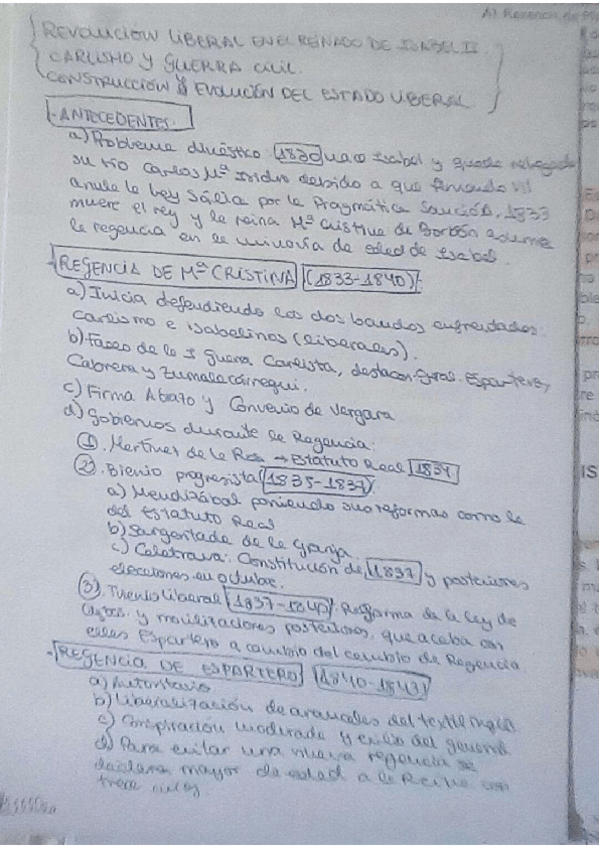 REVOLUCIÓN LIBERAL EN EL REINADO DE ISABEL II.
CARLISMO Y GUERRA CIVIL.
CONSTRUCCIÓN Y EVOLUCIÓN DEL ESTADO LIBERAL
- ANTECEDENTES.
a) Problema dinástico. 1830 nace Isabel y queda relegado
su tío Carlos Mª Isidro debido a que Fernando VII
anula la Ley Sálica por la Pragmática Sanción. 1833
muere el rey y la reina Mª Cristina de Borbón asume
la regencia en la minoría de edad de Isabel
- REGENCIA DE Mª CRISTINA (1833-1840).
a) Inicia defendiendo los dos bandos enfrentados:
carlismo e isabelinos (liberales).
b) Fases de la I guerra Carlista, destacan gral. Espartero,
Cabrera y Zumalacárregui.
c) Firma Abrazo y Convenio de Vergara
d) Gobiernos durante la Regencia:
① Martínez de la Rosa → Estatuto Real 1834
② Bienio progresista (1835-1837)
a) Mendizábal poniendo sus reformas como la
del Estatuto Real
b) Sargentada de la Granja.
c) Calatrava: Constitución de 1837 y posteriores
elecciones en octubre.
③ Trienio liberal (1837-1840). Reforma de la ley de
y movilizaciones posteriores, que acaba con
Espartero a cambio del cambio de Regencia
- REGENCIA DE ESPARTERO (1840-1843)
a) Autoritario
b) Liberalización de aranceles del textil inglés
c) Conspiración moderada y exilio del general
d) Para evitar una nueva regencia se
declara mayor de edad a la Reina con
trece años